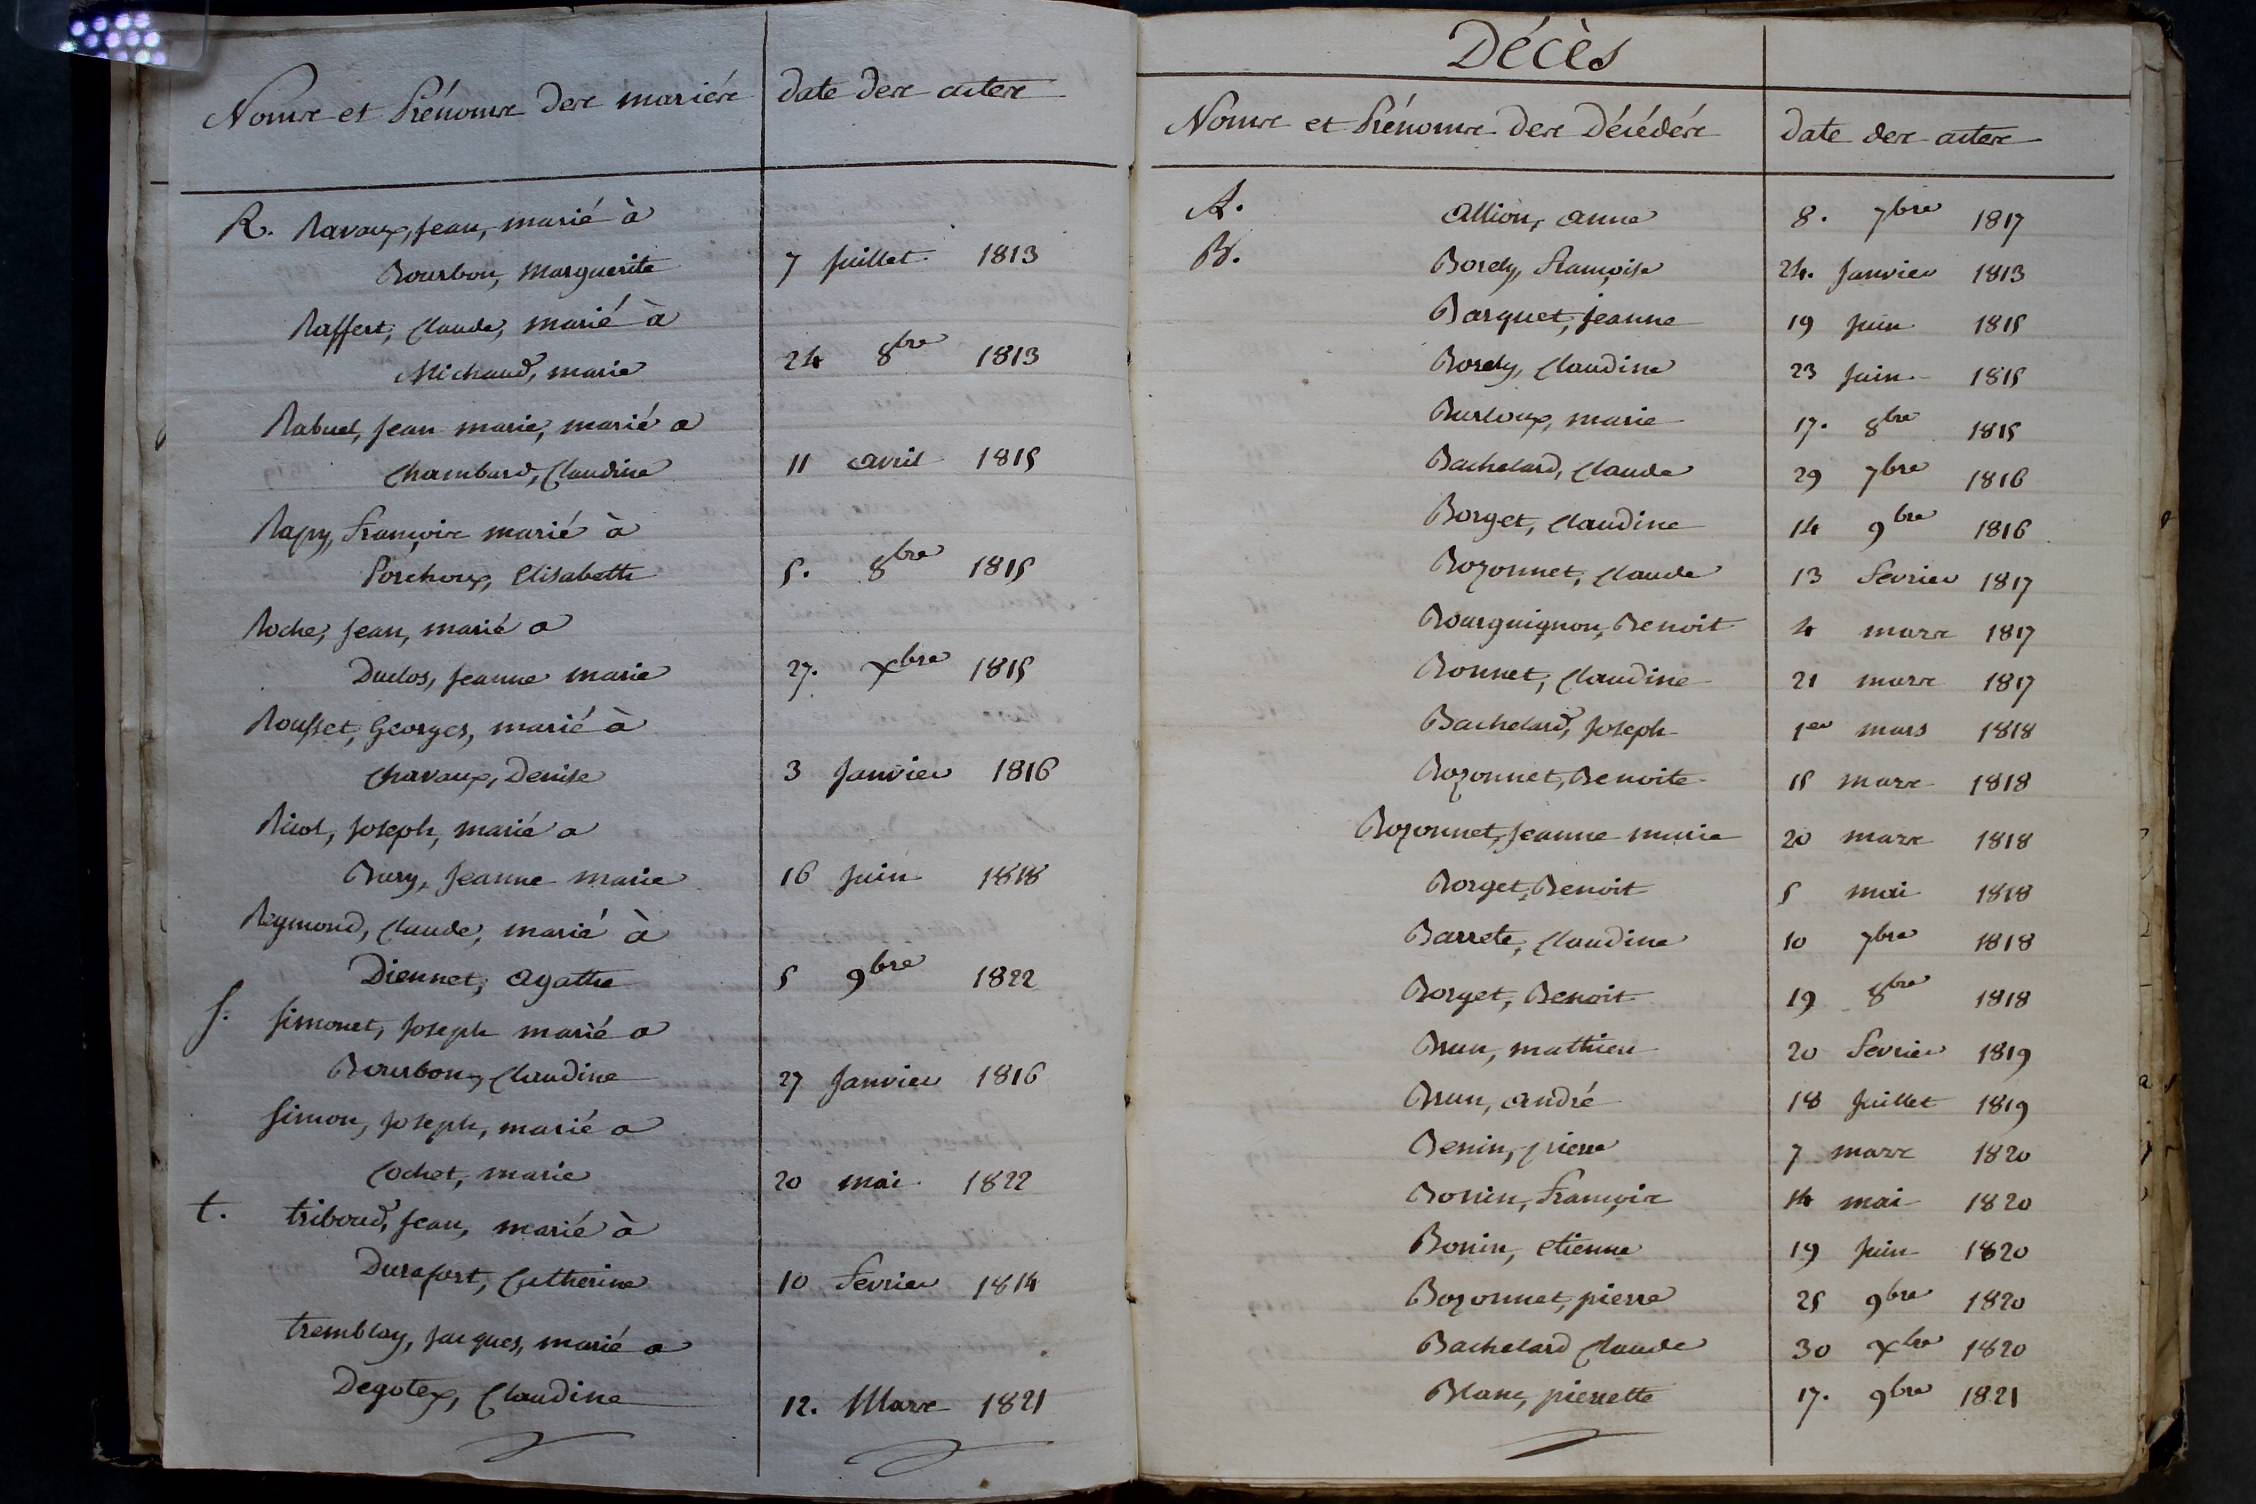 Noms et Prénoms des mariés date des actes
R. Ravaux, Jean, marié à
Bourbon, Marguerite 7 Juillet 1813
Raffert, Claude, marié à
Michaud, marie 24 8bre 1813
Rabuel, Jean marie, marié a
Chambard, Claudine 11 avril 1815
Rapy, François marié à
Porchoux, Elisabeth 5. 8bre 1815
Roche, Jean, marié a
Duclos, Jeanne marie 27. Xbre 1815
Rousset, Georges, marié à
Chavaux, Denise 3 Janvier 1816
Ricol, Joseph, marié a
Bury, Jeanne marie 16 Juin 1818
Reymond, Claude, marié à
Diennet, agathe 5 9bre 1822
S. Simonet, Joseph marié a
Bourbon, Claudine 27 Janvier 1816
Simon, Joseph, marié a
Cochet, marie 20 mai 1822
t. triboud, Jean, marié à
Durafort, Catherine 10 fevrier 1814
tremblay, Jacques, marié a
Degotex, Claudine 12. Mars 1821
Décès
Noms et Prénoms des Décédés date des actes
A. allion, anne 8. 7bre 1817
B. Borely, françoise 24. Janvier 1813
Barquet, jeanne 19 Juin 1815
Borely, Claudine 23 Juin 1815
Burloux, marie 17. 8bre 1815
Bachelard, Claude 29 7bre 1816
Borget, Claudine 14 9bre 1816
Bozonnet, Claude 13 fevrier 1817
Bourguignon, Benoit 4 mars 1817
Bonnet, Claudine 21 mars 1817
Bachelard, Joseph 1er mars 1818
Bozonnet, Benoite 15 mars 1818
Bozonnet, Jeanne marie 20 mars 1818
Borget, Benoit 5 mai 1818
Barrete, Claudine 10 7bre 1818
Borget, Benoit 19 8bre 1818
Brun, mathieu 20 fevrier 1819
Brun, andré 18 Juillet 1819
Benin, pierre 7 mars 1820
Bonin, françois 14 mai 1820
Bonin, etienne 19 Juin 1820
Bozonnet, pierre 25 9bre 1820
Bachelard Claude 30 Xbre 1820
Blanc, pierrette 17. 9bre 1821